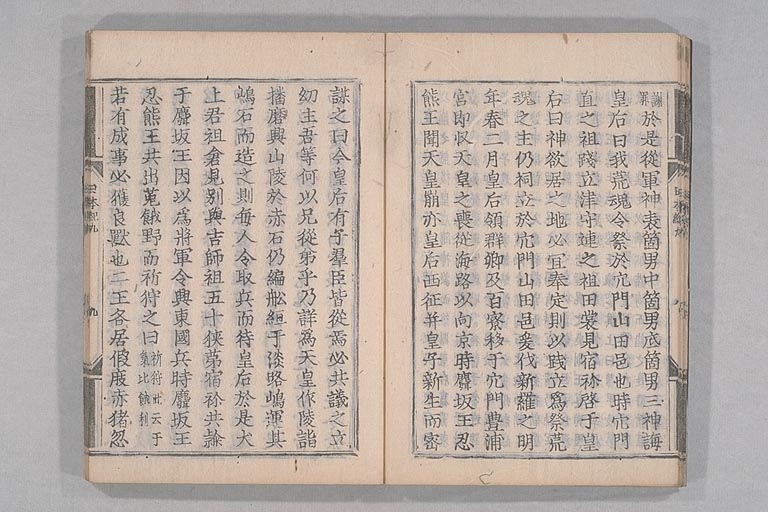 謝罪於是從軍神表箇男中箇男底箇男三神誨
皇后曰我荒魂令祭於穴門山田邑也時穴門
直之祖踐立津守連之祖田裳見宿祢啓于皇
后曰神欲居之地必宜奉定則以踐立爲祭荒
魂之主仍祠立於穴門山田邑爰伐新羅之明
年春二月皇后領群卿及百寮移于穴門豊浦
宮即収天皇之喪從海路以向京時麛坂王忍
熊王聞天皇崩亦皇后西征并皇子新生而密
謀之曰今皇后有子羣臣皆從焉必共議之立
幼主吾等何以兄從弟乎乃詳爲天皇作陵詣
播磨興山陵於赤石仍編舩絙于淡路嶋運其
嶋石而造之則毎人令取兵而待皇后於是犬
上君祖倉見別與吉師祖五十狹茅宿祢共隷
于麛坂王因以爲將軍令興東國兵時麛坂王
忍熊王共出菟餓野而祈狩之曰祈狩此云于氣比餓利
若有成事必獲良獸也二王各居假庪赤猪忽
日本紀九